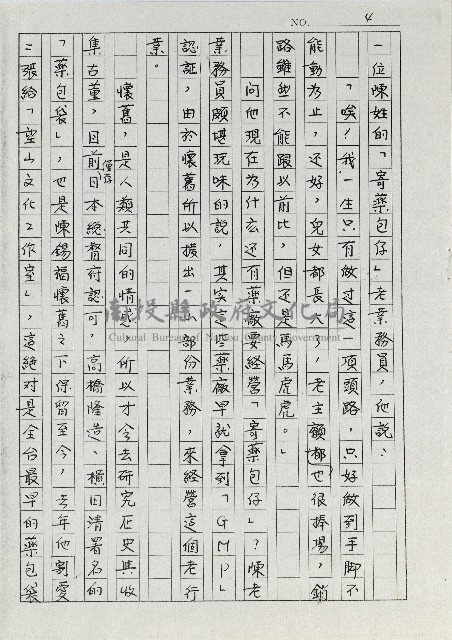 NO. 4
一位陳姓的「寄藥包仔」老業務員，他說：
「唉！我一生只有做过這一項頭路，只好做到手脚不
能動為止，还好，兒女都長大，老主顧都也很捧場，銷
路雖然不能跟以前比，但还是馬馬虎虎。」
問他現在為什么还有藥廠要經营「寄藥包仔」？陳老
業務員頗堪玩味的說，其实這些藥廠早就拿到「GMP」
認証，由於懷舊所以撥出一小部份業務，來經营這個老行
業。
懷舊，是人類共同的情感，所以才会去研究历史與收
集古董，目前僅存日本總督府認可，高橋隆造、楯田清署名的
「藥包袋」，也是陳錫福懷舊之下保留至今，去年他割愛
二張給「望山文化工作室」，這絕对是全台最早的藥包袋
南投縣政府文化局
Cultural Bureau of Nantou County Government